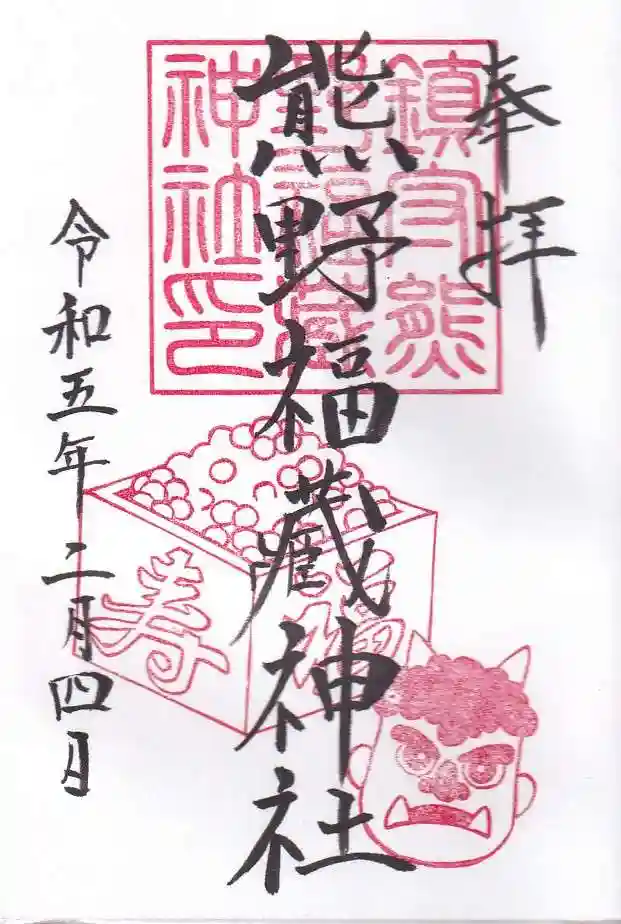 奉拝
鎮守熊
野福蔵
神社印
熊野福蔵神社
寿
福
令和五年二月四日